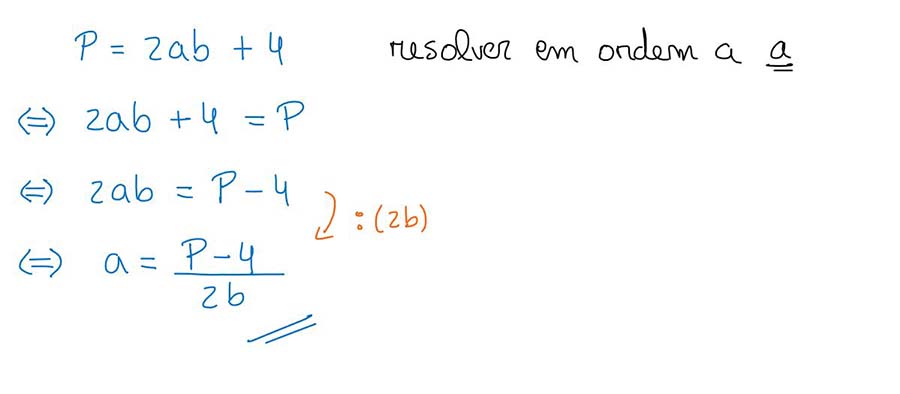 P = 2ab + 4 resolver em ordem a a
⇔ 2ab + 4 = P
⇔ 2ab = P - 4
: (2b)
⇔ a = P - 4 / 2b